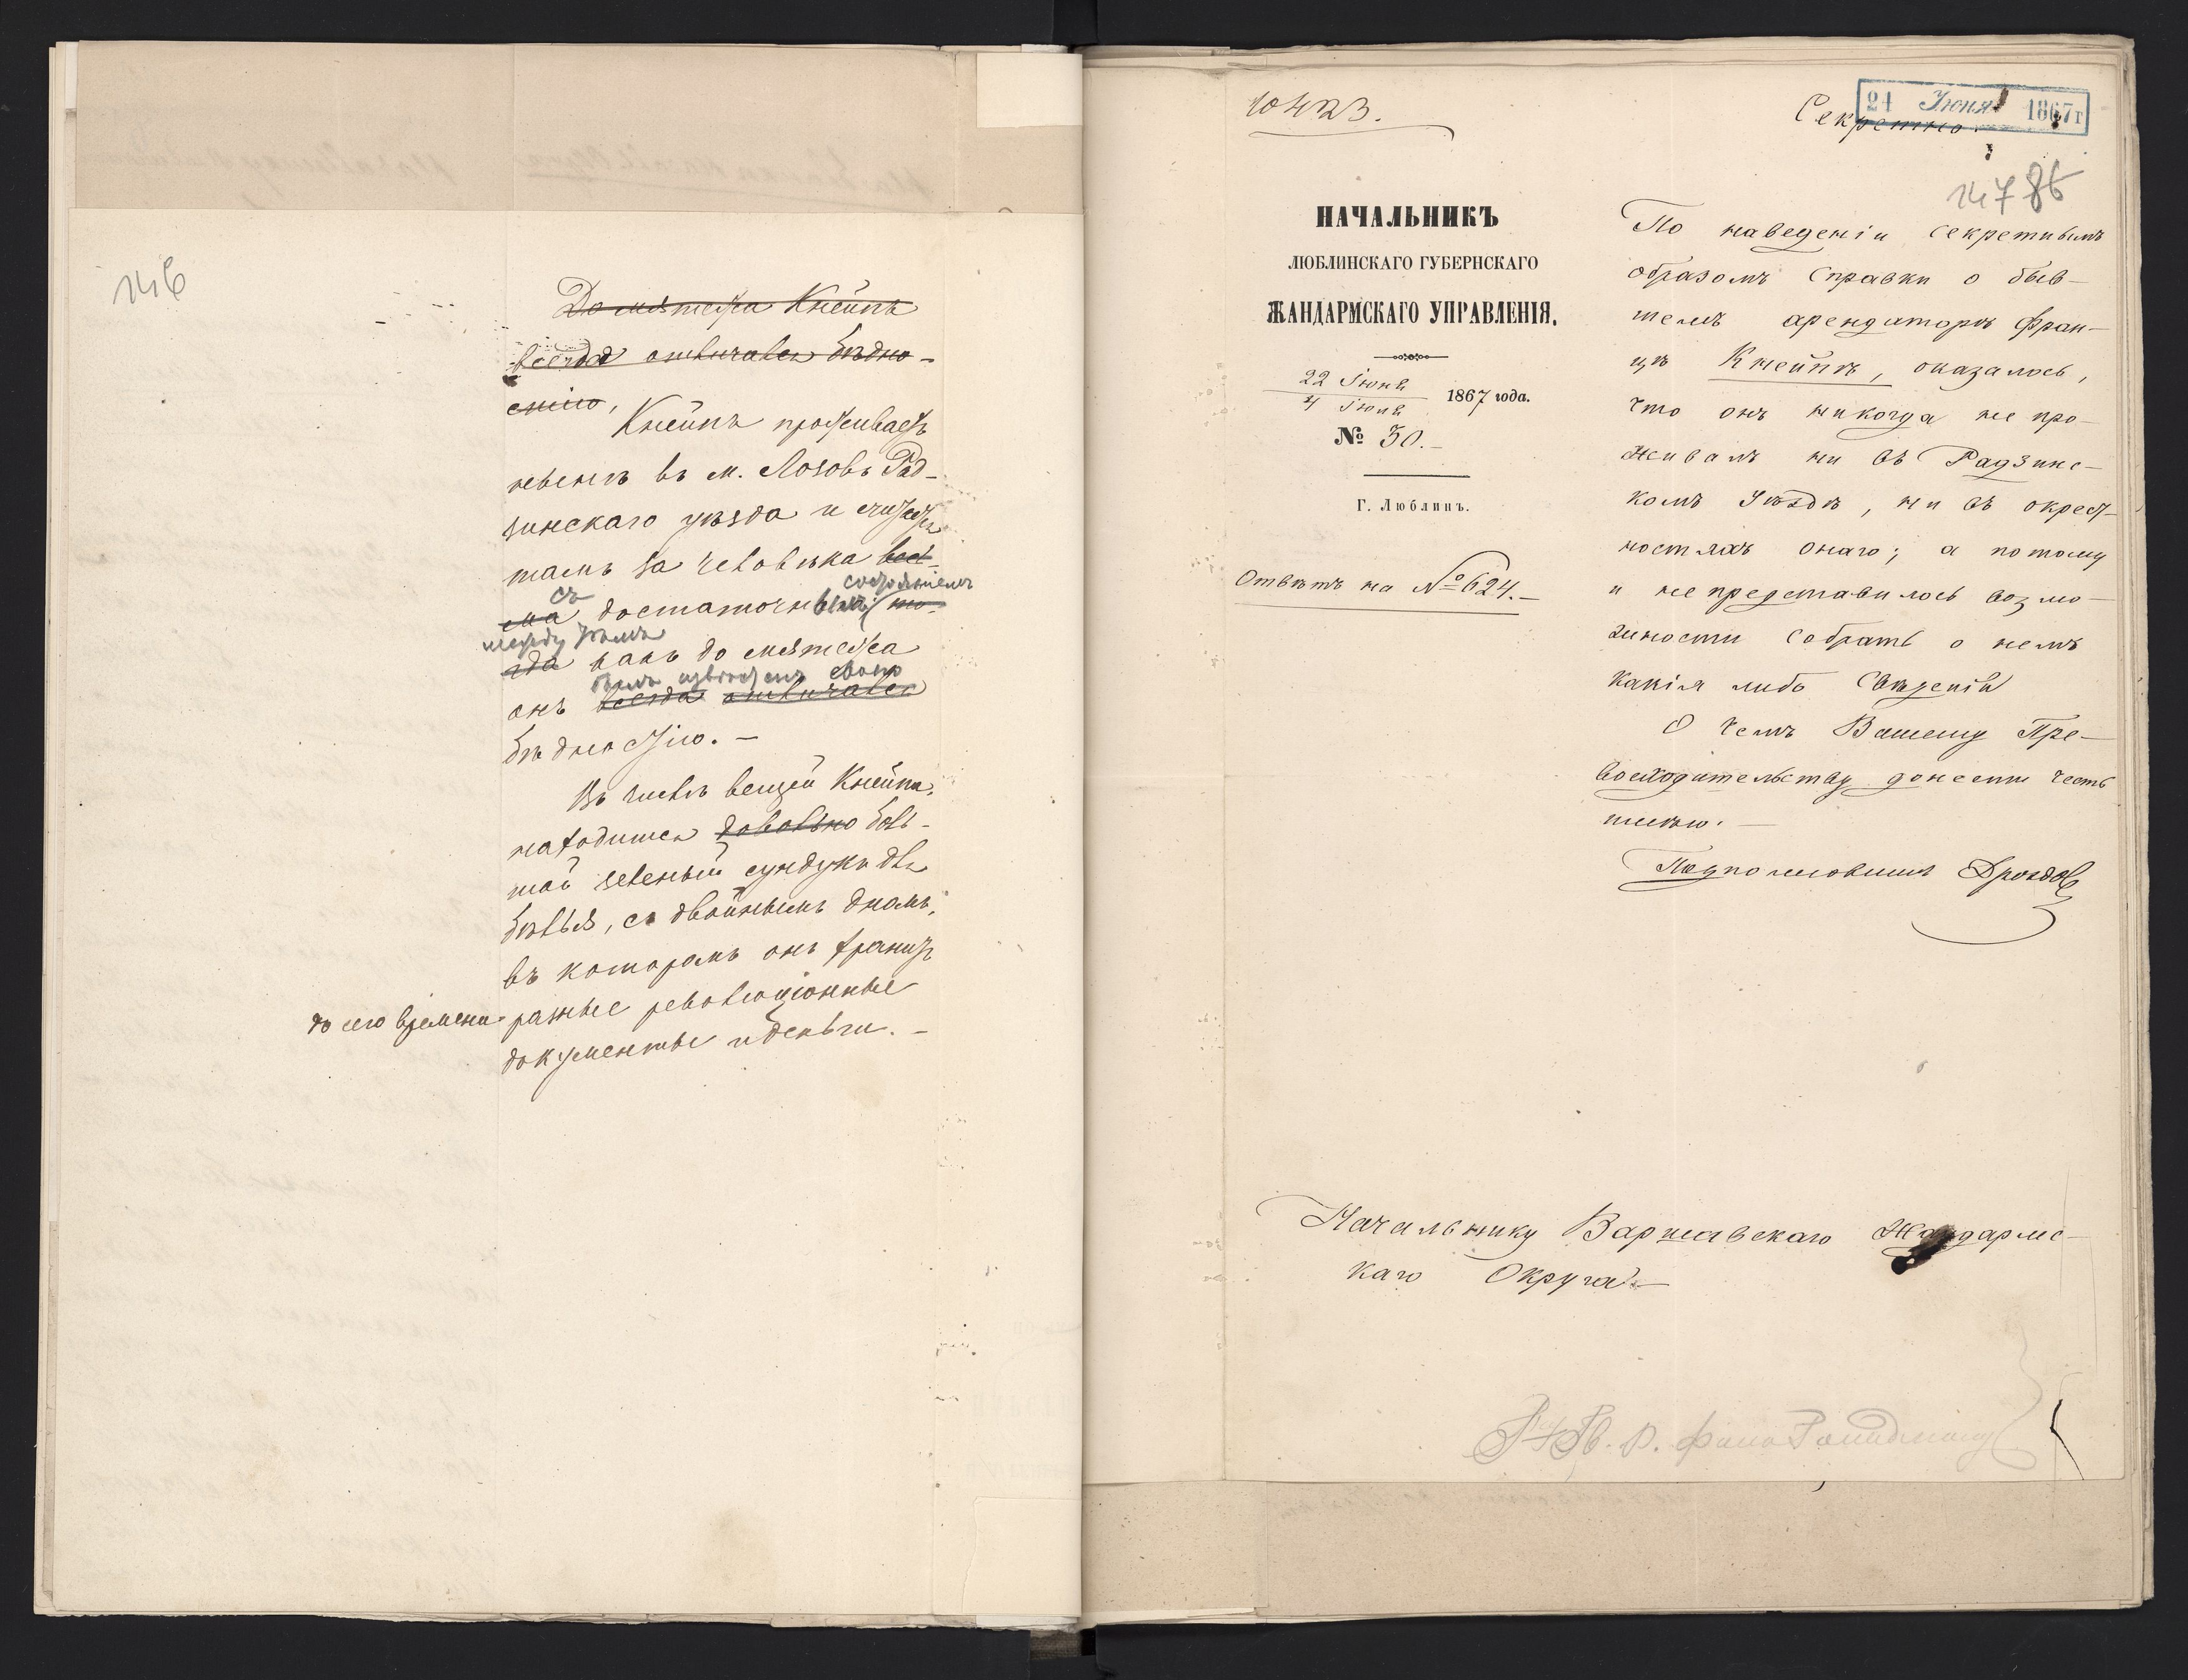 146
До мятежа Кнейпъ
всегда отличался бѣдно-
стію,
Кнейпъ проживаетъ
нынѣ въ м. Лозовъ Рад-
зинскаго уѣзда и считается
тамъ за человѣка весь-
съ состояніемъ
ма достаточнымъ, то-
между тѣмъ
гда какъ до мятежа
былъ извѣстенъ своею
онъ всегда отличался
бѣдностію. —
Въ числѣ вещей Кнейпа,
находится довольно боль-
шой зеленый сундукъ для
бѣлья, съ двойнымъ дномъ,
въ которомъ онъ хранитъ
до сего времени разные революціонные
документы и деньги. —
Секретно.
24 Іюня 1867 г
147 86
НАЧАЛЬНИКЪ
ЛЮБЛИНСКАГО ГУБЕРНСКАГО
ЖАНДАРМСКАГО УПРАВЛЕНІЯ.
22 Іюня
4 Іюля 1867 года.
№ 30.—
Г. Люблинъ.
Отвѣтъ на № 624.—
По наведеніи секретнымъ
образомъ справки о быв-
шемъ арендаторѣ Фран-
цѣ Кнейпѣ, оказалось,
что онъ никогда не про-
живалъ ни въ Радзинс-
комъ Уѣздѣ, ни въ окрест-
ностяхъ онаго; а потому
и не представилось возмо-
жности собрать о немъ
какія либо свѣденія
О чемъ Вашему Пре-
восходительству донести честь
имѣю. —
Подполковникъ Дроздовъ
Начальнику Варшавскаго Жандармс-
каго Округа. —